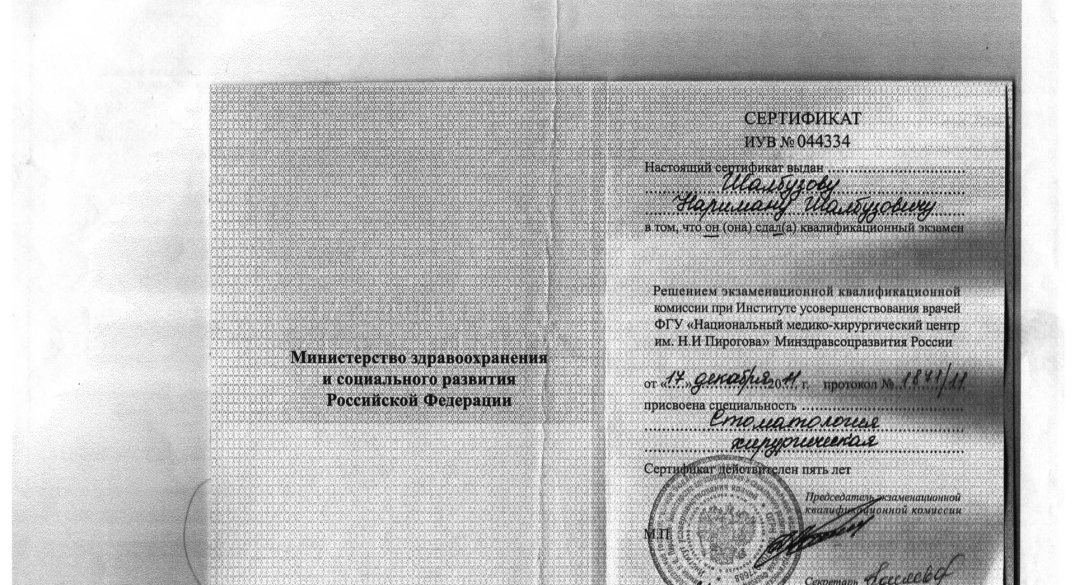 Министерство здравоохранения
и социального развития
Российской Федерации
СЕРТИФИКАТ
ИУВ № 044334
Настоящий сертификат выдан
Шалбузову
Нариману Шалбузовичу
в том, что он (она) сдал(а) квалификационный экзамен
Решением экзаменационной квалификационной
комиссии при Институте усовершенствования врачей
ФГУ «Национальный медико-хирургический центр
им. Н.И Пирогова» Минздравсоцразвития России
от «17» декабря 2011 г. протокол № 1871/11
присвоена специальность
Стоматология
хирургическая
Сертификат действителен пять лет
Председатель экзаменационной
квалификационной комиссии
М.П.
Секретарь